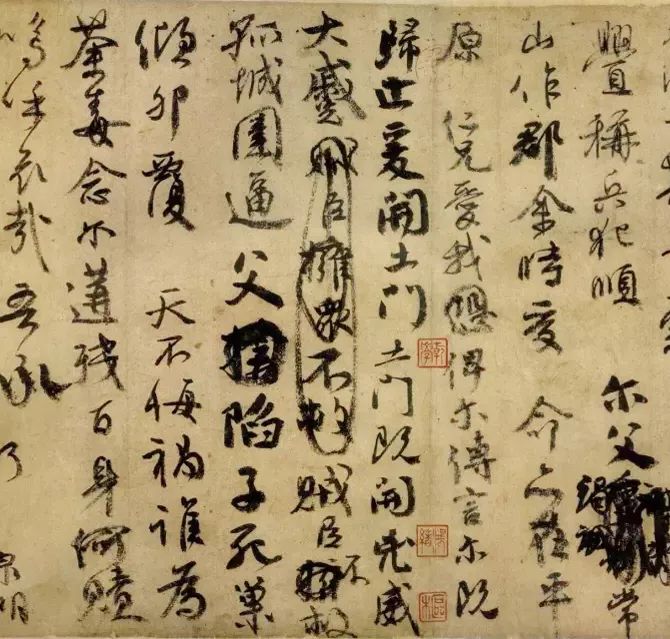 釁稱兵犯順尔父常
山作郡余時受命亦在平
原仁兄愛我俾尔傳言尔既
歸止爰開土門土門既開凶威
大蹙賊臣擁衆不救賊臣不救
孤城圍逼父陷子死巢
傾卵覆天不悔禍誰為
荼毒念尔遘殘百身何贖
嗚呼哀哉吾承